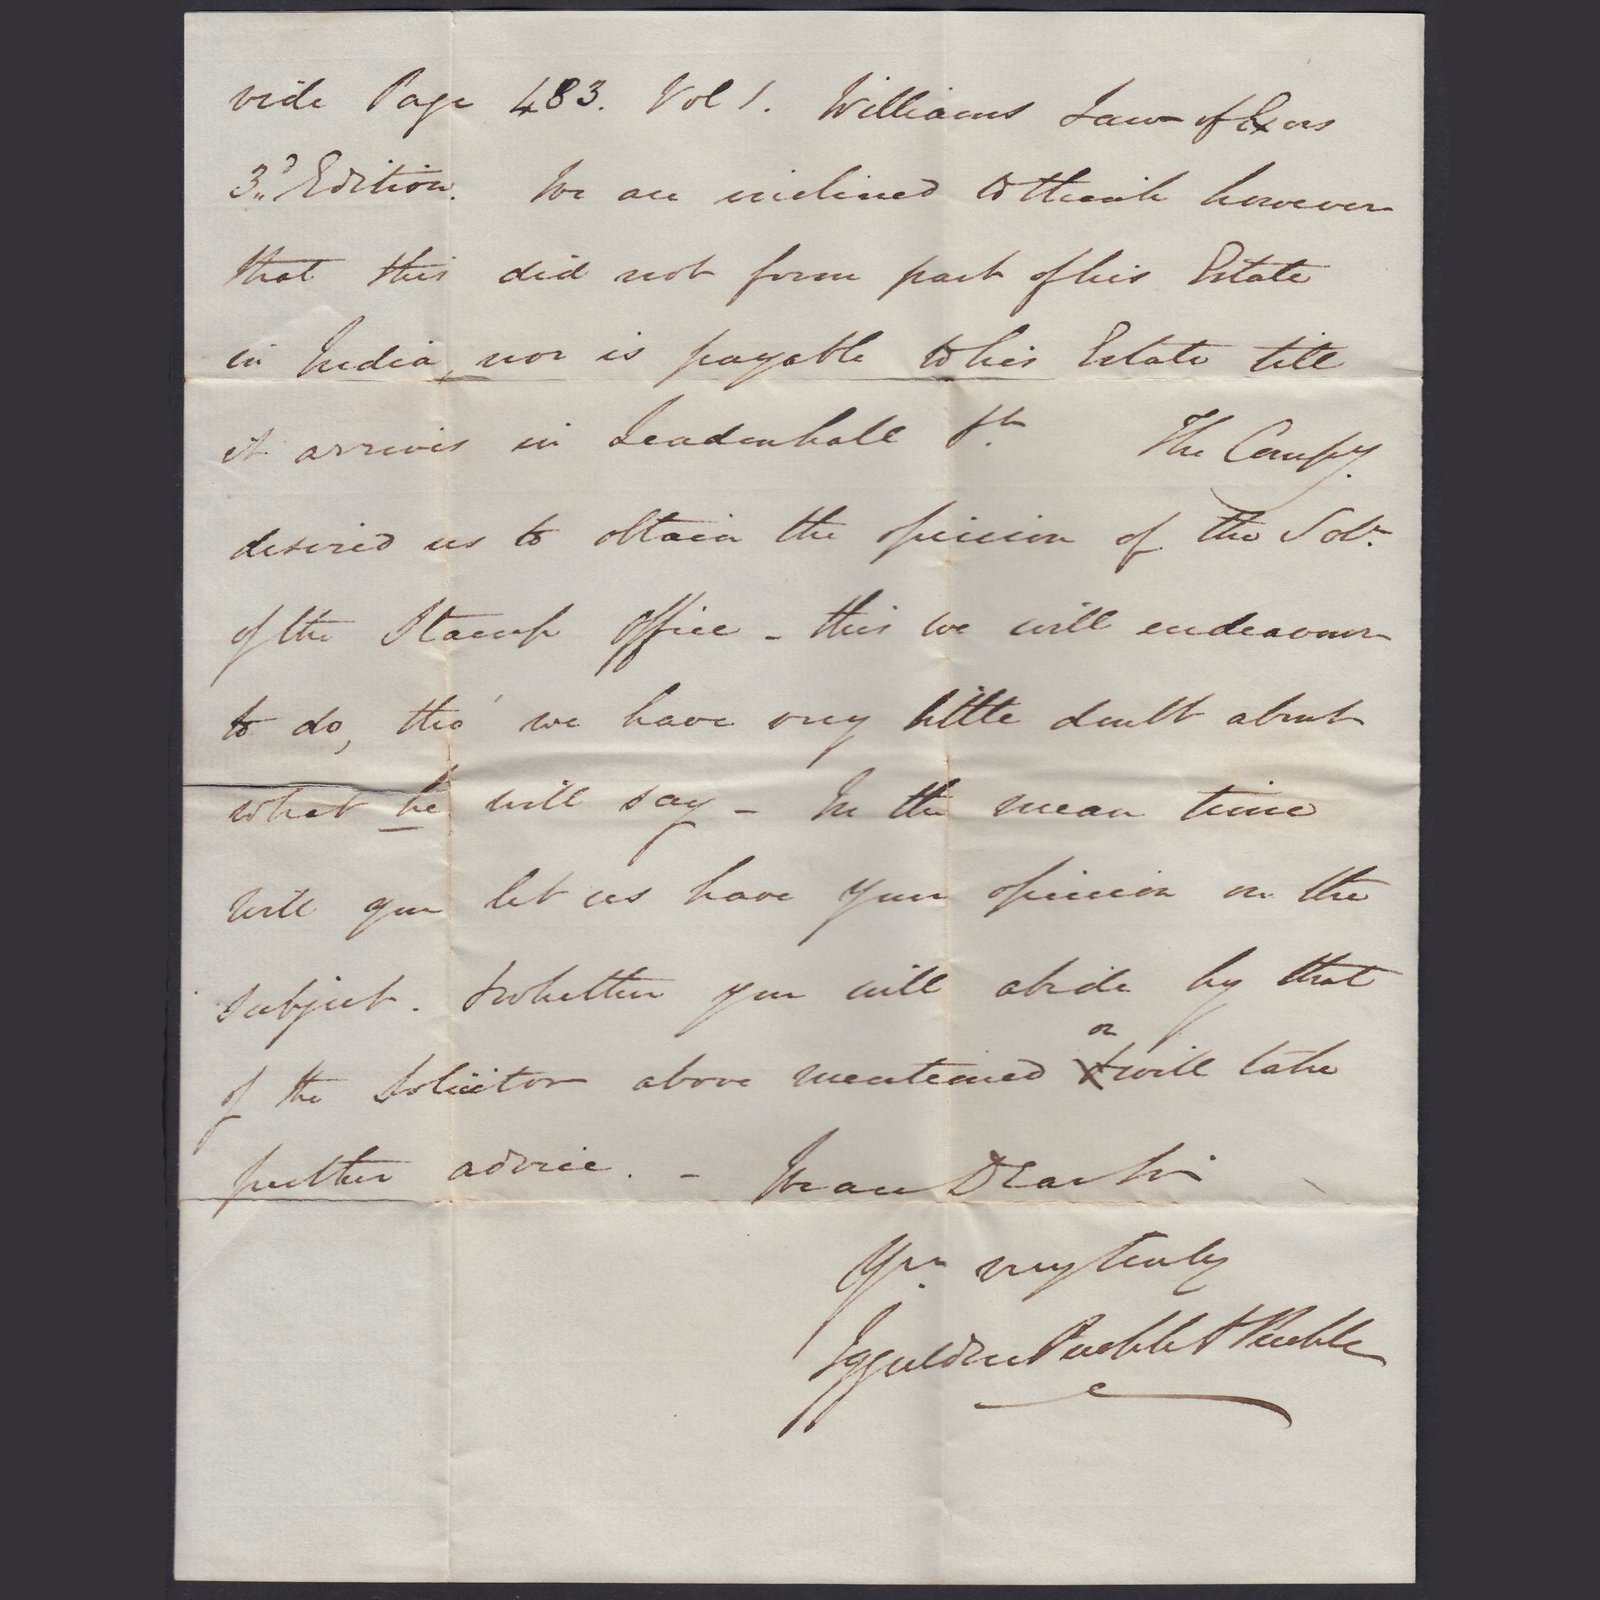 vide Page 483. Vol 1. Williams Law of Exors
3d Edition. We are inclined to think however
that this did not form part of his Estate
in India, nor is payable to his Estate till
it arrives in Leadenhall St. The Compy.
desired us to obtain the opinion of the Solr.
of the Stamp Office - this we will endeavour
to do, tho' we have very little doubt about
what he will say - In the mean time
will you let us have your opinion on the
subject. & whether you will abide by that
of the Solicitor above mentioned or will take
further advice. - We are D Sir
Yrs. very truly
Iggulden Pueble & Pueble